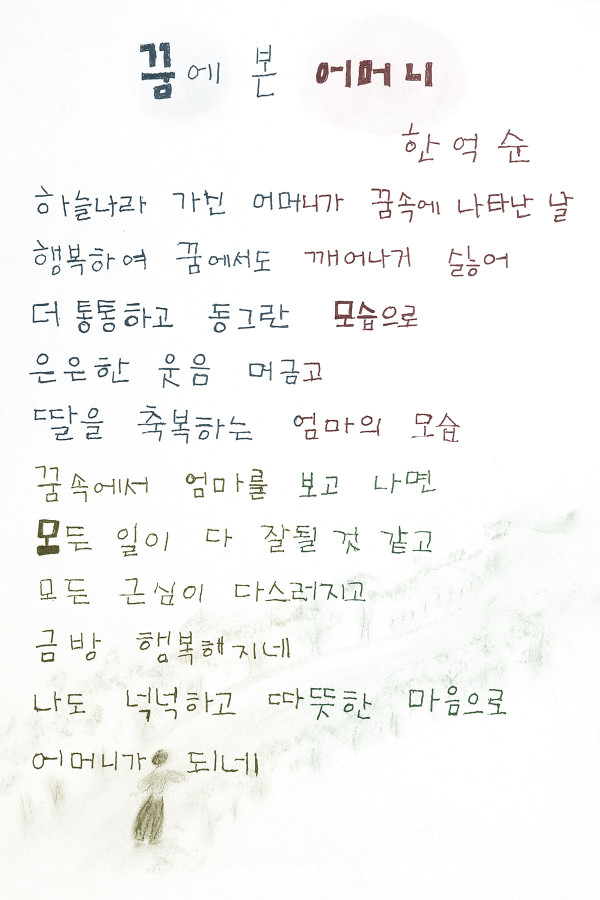 꿈에 본 어머니
한억순
하늘나라 가신 어머니가 꿈속에 나타난 날
행복하여 꿈에서도 깨어나기 싫어
더 통통하고 동그란 모습으로
은은한 웃음 머금고
딸을 축복하는 엄마의 모습
꿈속에서 엄마를 보고 나면
모든 일이 다 잘될 것 같고
모든 근심이 다스러지고
금방 행복해지네
나도 넉넉하고 따뜻한 마음으로
어머니가 되네